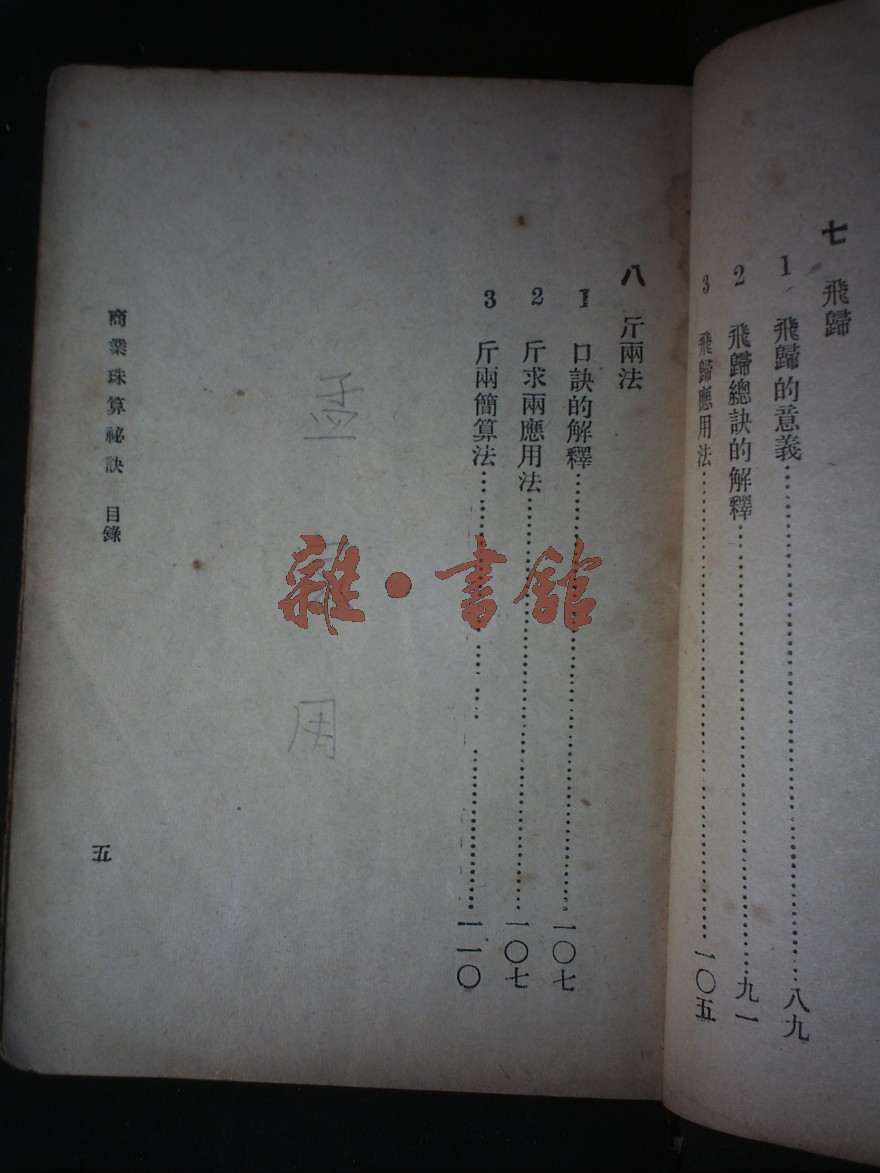 七　飛歸
1　飛歸的意義……八九
2　飛歸總訣的解釋……九一
3　飛歸應用法……一〇五
八　斤兩法
1　口訣的解釋……一〇七
2　斤求兩應用法……一〇七
3　斤兩簡算法……一一〇
孟
用
雜·書館
商業珠算祕訣　目錄
五